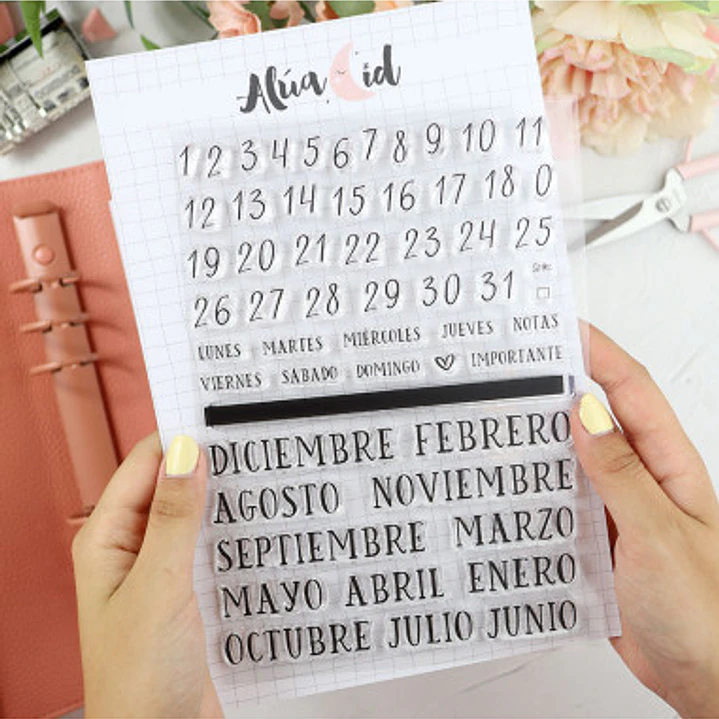 Alúa Cid
1 2 3 4 5 6 7 8 9 10 11
12 13 14 15 16 17 18 0
19 20 21 22 23 24 25
26 27 28 29 30 31
LUNES MARTES MIÉRCOLES JUEVES NOTAS
VIERNES SÁBADO DOMINGO IMPORTANTE
DICIEMBRE FEBRERO
AGOSTO NOVIEMBRE
SEPTIEMBRE MARZO
MAYO ABRIL ENERO
OCTUBRE JULIO JUNIO